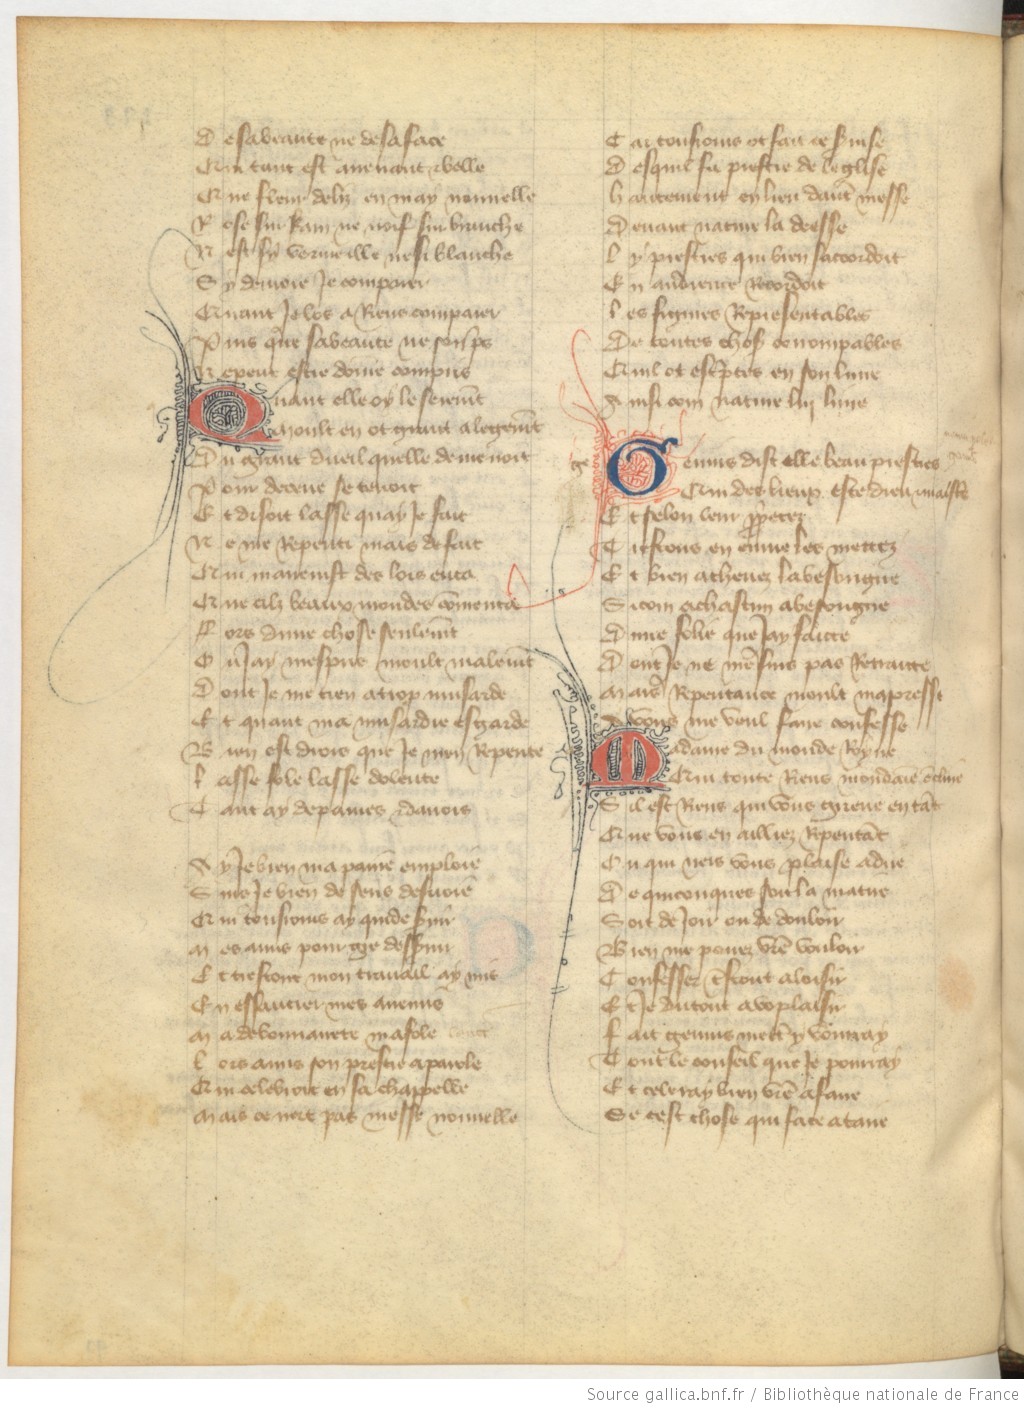 De sa beaute ne de sa face
Qui tant est auenant et belle
Que fleur de lyz en may nouuelle
Rose sur Rain ne noif sur branche
N est sy vermeille ne si blanche
Sy deuroie Je comparer
Quant Je los a Riens comparer
Puis que sa beaute ne son pris
Ne peut estre dome compris
Quant elle oy le serement
Moult en ot grant alegement
Du grant dueil quelle demenoit
Pour deceue se tenoit
Et disoit lasse quay Je fait
Ne me Repenti mais de fait
Que cilz beaux mondes commenca
Fors dune chose seulement
Ou Jay mespris moult malement
Dont Je me tien a trop musarde
Et quant ma musardie esgarde
Bien est drois que Je men Repente
Lasse fole lasse dolente
Ay Je bien ma paine emploie
Suis Je bien de sens desuoie
Qui tousiours ay cuide seruir
Mes amis pour gre desseruir
Et trestout mon trauail ay mis
En essaucier mes anemis
Ma debonnairete mafole
Lors a mis son prestre a parole
Qui celebroit en sa chappelle
Mais ce nert pas messe nouuelle
Car tousiours ot fait ce seruise
Des quil fu prestre de leglise
Hautement en lieu dautre messe
Deuant nature la deesse
Ly prestres qui bien saccordoit
En audience Recordoit
Les figures Representables
De toutes choses corrompables
Quil ot escriptes en son liure
Ainsi com nature luy liure
Genius dist elle beau prestres
Qui des lieux estes dieu et maistre
Et selon leur proprietez
Et bien acheuez la besongne
Si com a chascun a besongne
Dune folie que Jay faicte
Dont Je ne me suis pas Retraicte
Mais Repentance moult mapresse
A vous me veul faire confesse
Madame du monde Royne
Qui toute Riens mondaine encline
Sil est Riens qui vous grieue en tant
Que vous en ailliez Repentant
Ou qui neis vous plaise a dire
De quiconques soit la matire
Soit de Joir ou de douloir
Bien me pouez vostre vouloir
Confesser trestout a loisir
Et Je du tout a vo plaisir
Fait genius mettre y vourray
Tout le conseil que Je pourray
Et celeray bien vostre afaire
Se cest chose qui face a taire
Source gallica.bnf.fr / Bibliothèque nationale de France